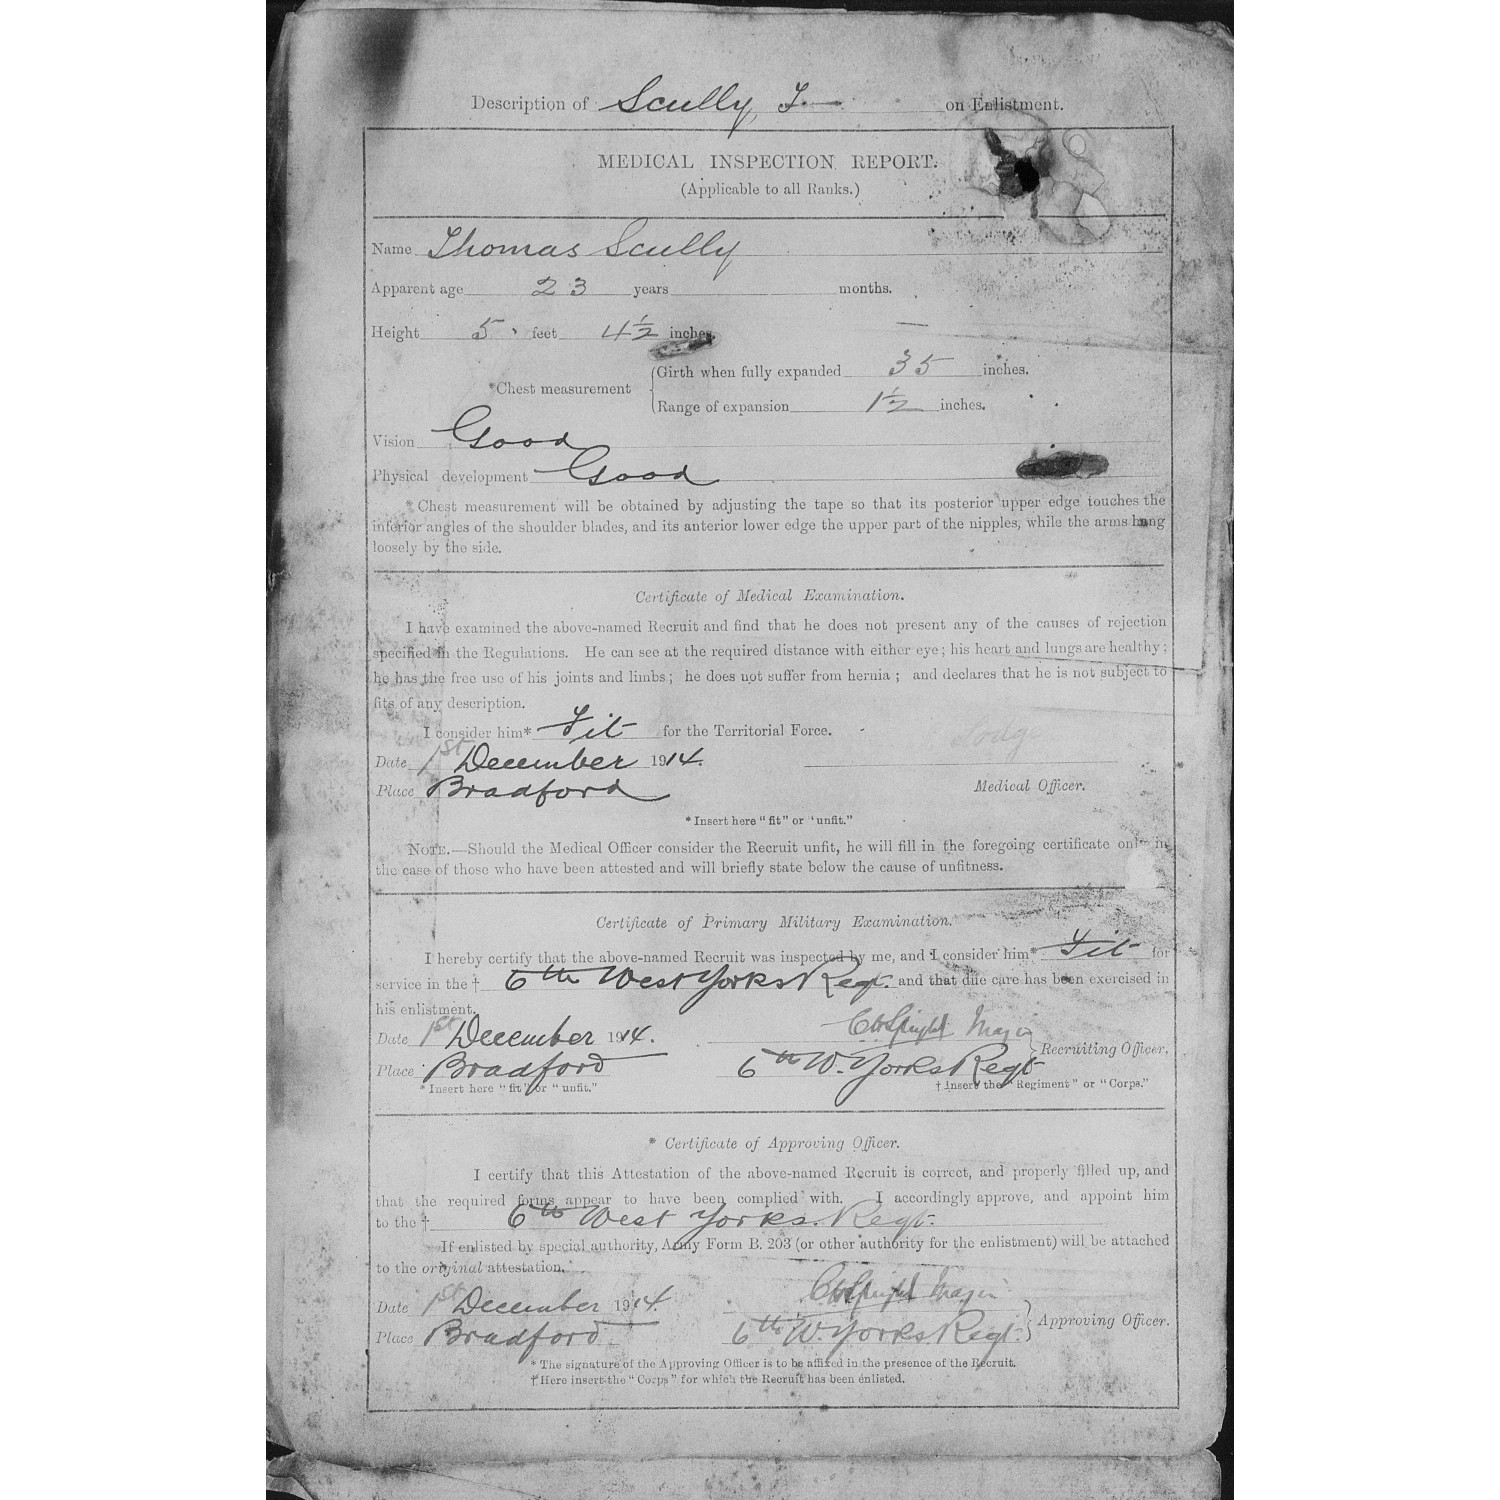 Description of Scully, T on Enlistment.
MEDICAL INSPECTION REPORT.
(Applicable to all Ranks.)
Name Thomas Scully
Apparent age 23 years months.
Height 5 feet 4½ inches.
Girth when fully expanded 35 inches.
*Chest measurement
Range of expansion 1½ inches.
Vision Good
Physical development Good
* Chest measurement will be obtained by adjusting the tape so that its posterior upper edge touches the
inferior angles of the shoulder blades, and its anterior lower edge the upper part of the nipples, while the arms hang
loosely by the side.
Certificate of Medical Examination.
I have examined the above-named Recruit and find that he does not present any of the causes of rejection
specified in the Regulations. He can see at the required distance with either eye; his heart and lungs are healthy;
he has the free use of his joints and limbs; he does not suffer from hernia; and declares that he is not subject to
fits of any description.
I consider him* Fit for the Territorial Force.
Date 1st December 1914.
Place Bradford
Medical Officer.
* Insert here "fit" or "unfit."
NOTE.—Should the Medical Officer consider the Recruit unfit, he will fill in the foregoing certificate only in
the case of those who have been attested and will briefly state below the cause of unfitness.
Certificate of Primary Military Examination.
I hereby certify that the above-named Recruit was inspected by me, and I consider him* Fit for
service in the † 6th West Yorks Regt. and that due care has been exercised in
his enlistment.
Date 1st December 1914. Major
Recruiting Officer.
Place Bradford 6th W. Yorks Regt
* Insert here "fit" or "unfit." † Insert the "Regiment" or "Corps."
* Certificate of Approving Officer.
I certify that this Attestation of the above-named Recruit is correct, and properly filled up, and
that the required forms appear to have been complied with. I accordingly approve, and appoint him
to the † 6th West Yorks. Regt.
If enlisted by special authority, Army Form B. 203 (or other authority for the enlistment) will be attached
to the original attestation.
Date 1st December 1914. Major
Approving Officer.
Place Bradford 6th W. Yorks. Regt.
* The signature of the Approving Officer is to be affixed in the presence of the Recruit.
† Here insert the "Corps" for which the Recruit has been enlisted.